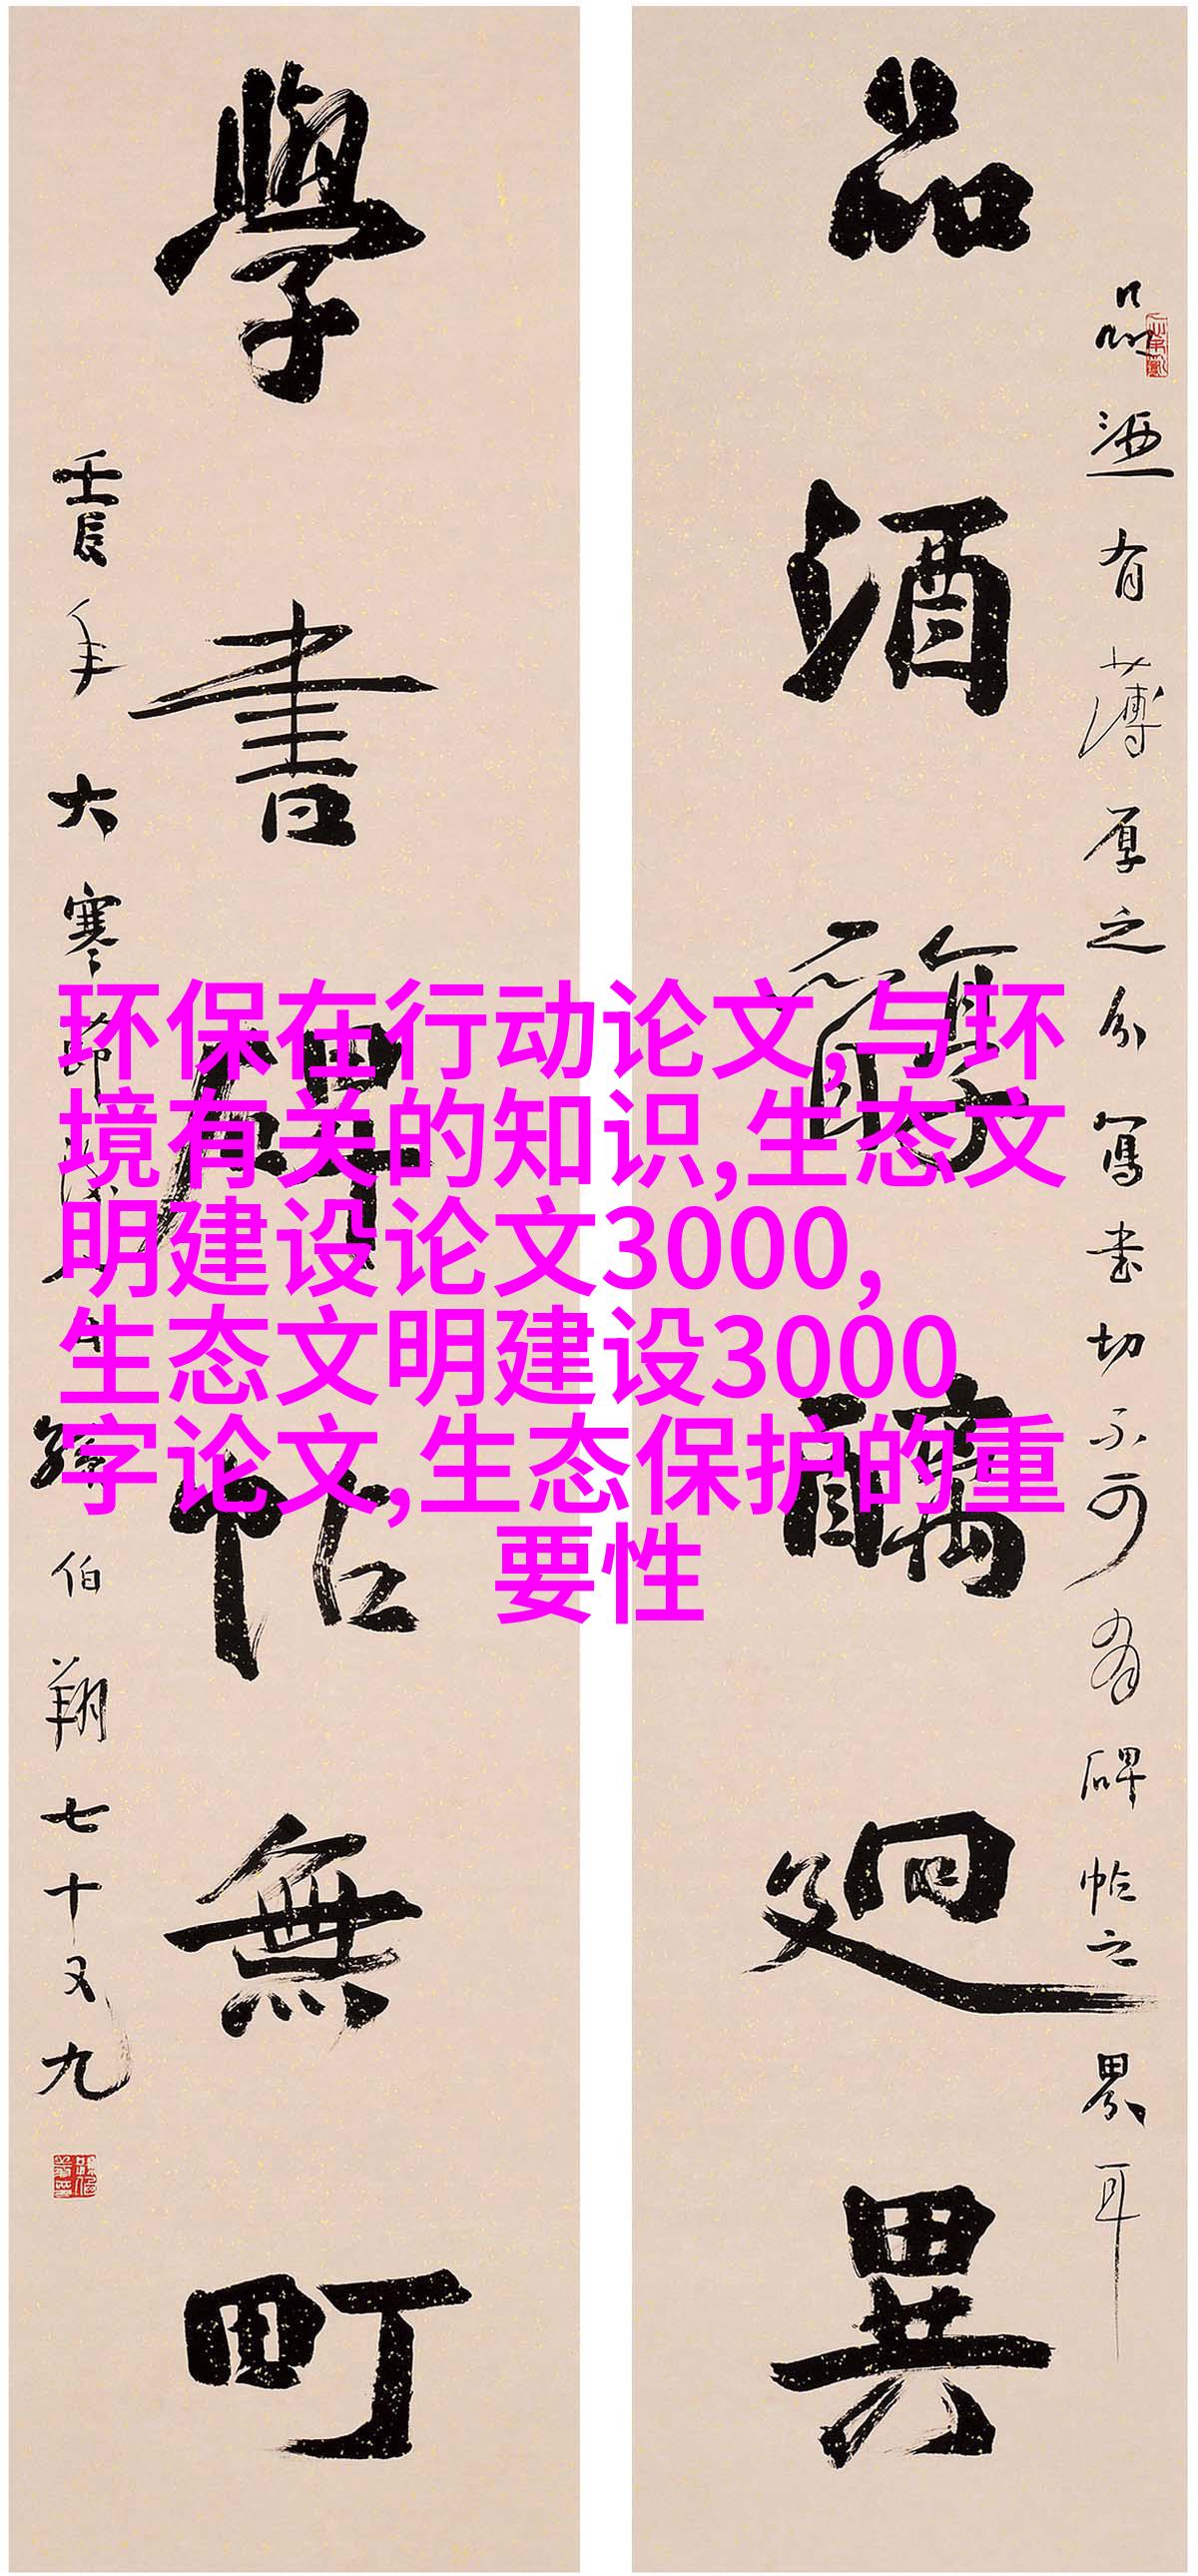 品酒有薄厚之分寫書切不可有碑帖之界耳
品酒醨廻異
學書碑帖無町
壬辰年大寒節孫伯翔七十又九
环保在行动论文,与环
境有关的知识,生态文
明建设论文3000,
生态文明建设3000
字论文,生态保护的重
要性